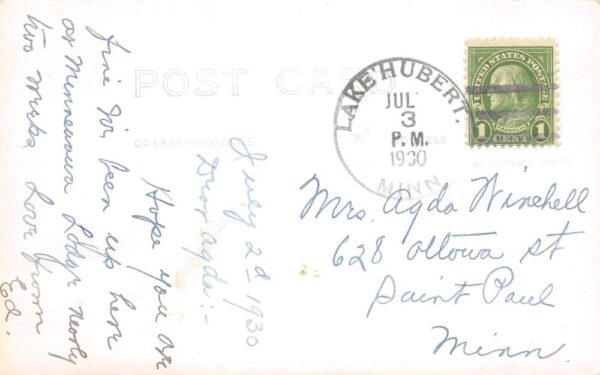 POST CARD
CORRESPONDENCE
ADDRESS
July 2d 1930
Dear Agda:-
Hope you are
fine We been up here
at Minnewawa Lodge nearly
two weeks Love from
Ed.
LAKE HUBERT.
JUL
3
P.M.
1930
MINN
UNITED STATES POSTAGE
FRANKLIN
1 CENT 1
Mrs. Agda Winchell
628 Ottowa st
Saint Paul
Minn.